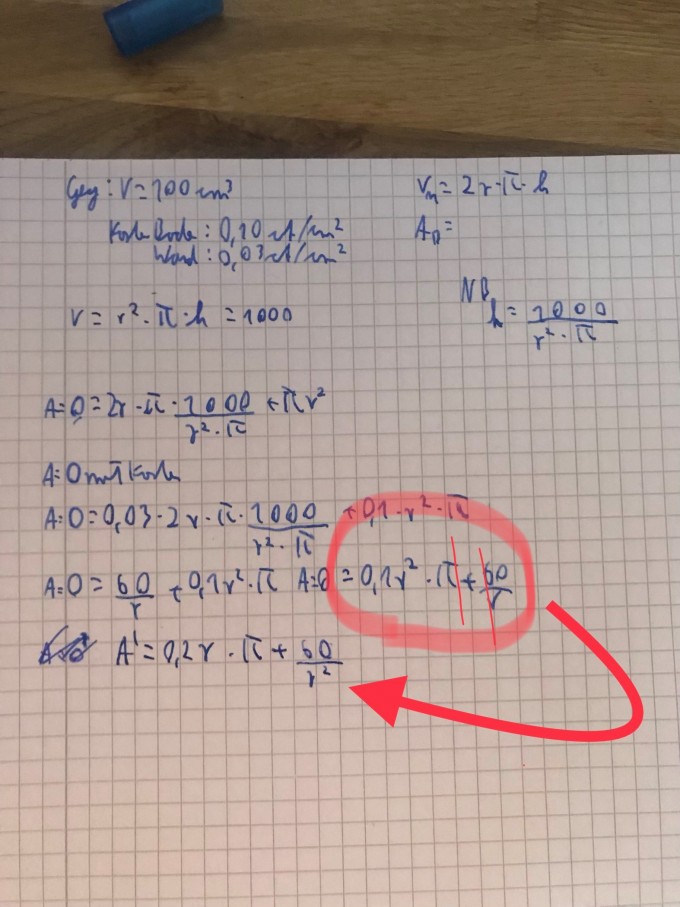 Geg: V = 100 cm³
V_M = 2r · π · h
Koste Bode: 0,10 ct/cm²
A_O =
Wand: 0,03 ct/cm²
NB
V = r² · π · h = 1000
h = 1000/(r² · π)
A: O = 2r · π · 1000/(r² · π) + πr²
A: O mit Koste
A: O = 0,03 · 2r · π · 1000/(r² · π) + 0,1 · r² · π
A: O = 60/r + 0,1r² · π A: O = 0,1r² · π + 60/r
A' = 0,2r · π + 60/r²